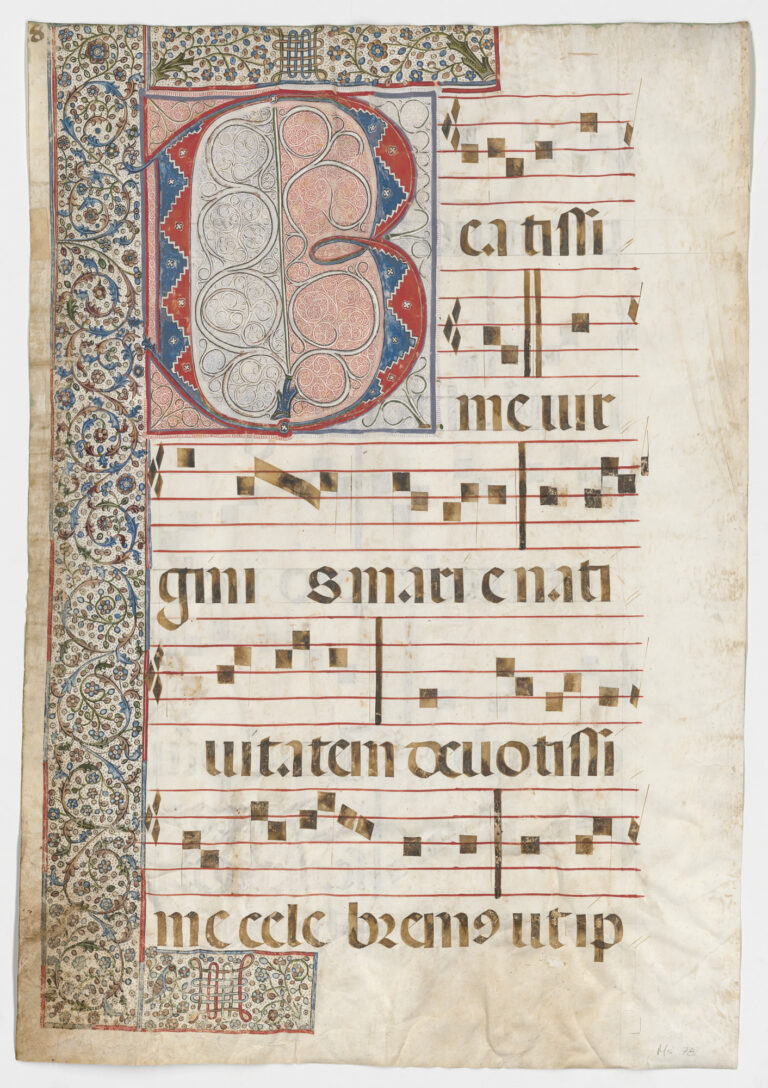 8
B eatissi
me uir
gini s mari e nati
uitatem deuotissi
me cele bremꝰ ut ip
Ms 78